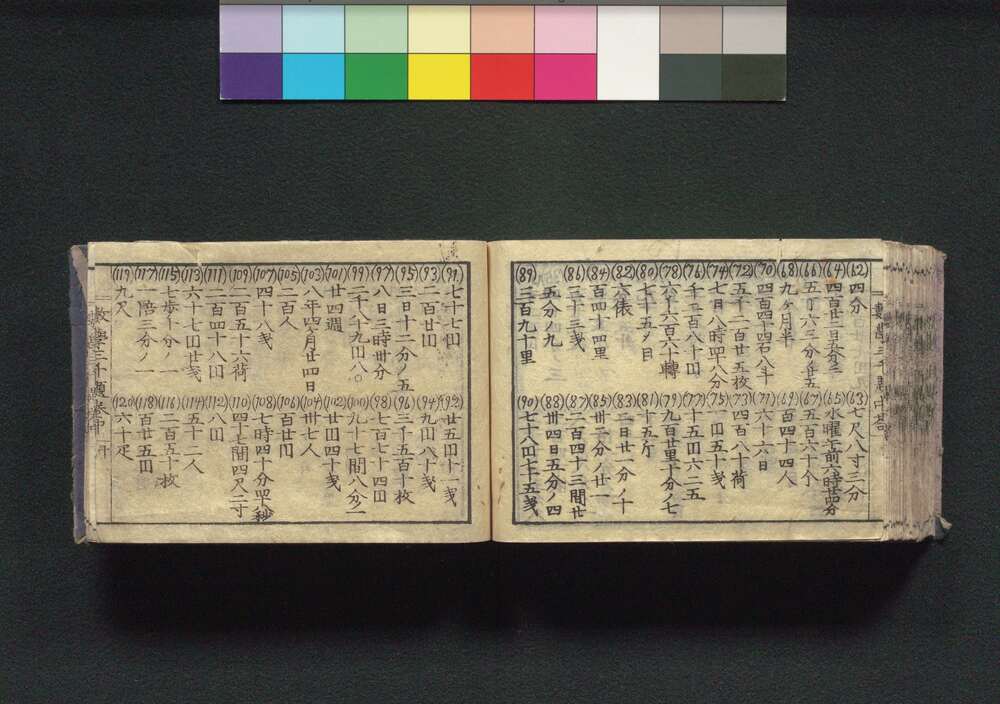 (62) 四分 (63) 七尺八寸三分
(64) 四百廿二日 (65) 水曜午前六時
(66) 五丁六 (67) 五百六十个
(68) 九ヶ月半 (69) 百四十四人
(70) 四百四十四石八斗 (71) 六十六日
(72) 五千二百廿五枚 (73) 四百八十荷
(74) 七日八時四十八分 (75) 一円五十戔
(76) 千二百八十円 (77) 十五円六二五
(78) 六千六百六十轉 (79) 九百廿里十分ノ七
(80) 七十五ヶ日 (81) 十五斤
(82) 六俵 (83) 二日廿一分ノ十
(84) 百四十四里 (85) 卅二分ノ廿一
(86) 三十三戔 (87) 二百四十三間廿
五分ノ九 (88) 卅四日五分ノ四
(89) 三百九十里 (90) 七十八円七十五戔
(91) 七十七円 (92) 廿五円十一戔
(93) 二百廿円 (94) 九円八十戔
(95) 三日十二分ノ五 (96) 三千五百十枚
(97) 八日三時卅分 (98) 七百七十四円
(99) 二千八千九円八〇 (100) 九十七間八分ノ一
(101) 廿四週 (102) 廿円四十戔
(103) 八年四ヶ月廿四日 (104) 卅七人
(105) 二百人 (106) 百廿円
(107) 四十八戔 (108) 七時四十分四十秒
(109) 二百五十六荷 (110) 四十七間四尺二寸
(111) 二百四十八円 (112) 八円
(113) 六十七円廿戔 (114) 五十二人
(115) 七歩十分ノ一 (116) 二百五十枚
(117) 一階三分ノ一 (118) 百廿五円
(119) 九尺 (120) 六十疋
數學三千題卷中 十